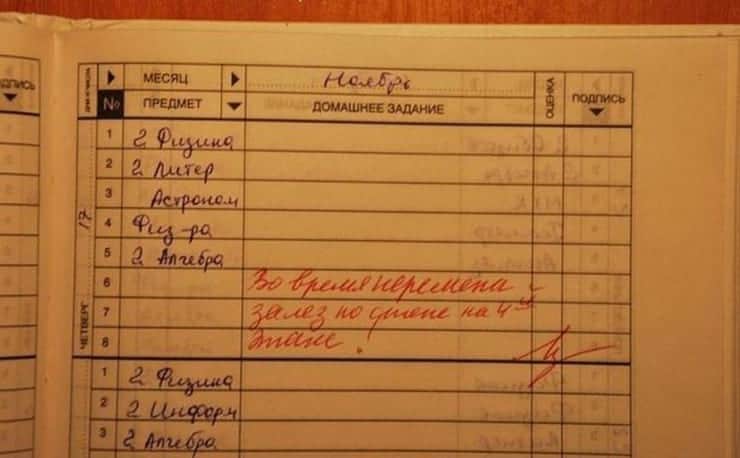 ПОДПИСЬ
ДНИ И ЧИСЛА МЕСЯЦ Ноябрь
№ ПРЕДМЕТ ДОМАШНЕЕ ЗАДАНИЕ ОЦЕНКА ПОДПИСЬ
ЧЕТВЕРГ 17
1 2 Физика
2 2 Литер
3 Астроном
4 Физ-ра
5 2 Алгебра
6 Во время перемены
7 залез по стене на 4ый
8 этаж!
1 2 Физика
2 2 Информ
3 2 Алгебра